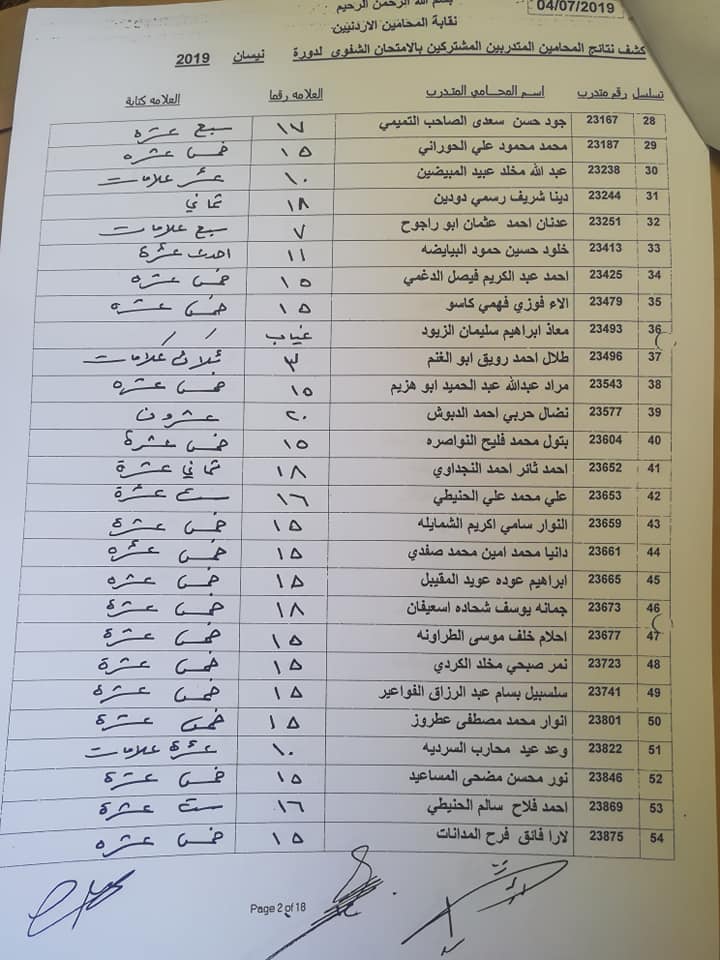 بسم الله الرحمن الرحيم
04/07/2019
نقابة المحامين الاردنيين
كشف نتائج المحامين المتدربين المشتركين بالامتحان الشفوي لدورة نيسان 2019
تسلسل رقم متدرب اسم المحامي المتدرب العلامه رقما العلامه كتابة
28 23167 جود حسن سعدي الصاحب التميمي ١٧ سبع عشره
29 23187 محمد محمود علي الحوراني ١٥ خمس عشره
30 23238 عبد الله مخلد عبيد المبيضين ١٠ عشر علامات
31 23244 دينا شريف رسمي دودين ١٨ ثماني
32 23251 عدنان احمد عثمان ابو راجوح ٧ سبع علامات
33 23413 خلود حسين حمود البيايضه ١١ احدى عشرة
34 23425 احمد عبد الكريم فيصل الدغمي ١٥ خمس عشره
35 23479 الاء فوزي فهمي كاسو ١٥ خمس عشره
36 23493 معاذ ابراهيم سليمان الزيود غياب
37 23496 طلال احمد رويق ابو الغنم ٣ ثلاث علامات
38 23543 مراد عبدالله عبد الحميد ابو هزيم ١٥ خمس عشره
39 23577 نضال حربي احمد الدبوش ٢٠ عشرون
40 23604 بتول محمد فليح النواصره ١٥ خمس عشرة
41 23652 احمد ثائر احمد النجداوي ١٨ ثماني عشرة
42 23653 علي محمد علي الحنيطي ١٦ ست عشرة
43 23659 النوار سامي اكريم الشمايله ١٥ خمس عشرة
44 23661 دانيا محمد امين محمد صفدي ١٥ خمس عشره
45 23665 ابراهيم عوده عويد المقيبل ١٥ خمس عشره
46 23673 جمانه يوسف شحاده اسعيفان ١٨ خمس عشرة
47 23677 احلام خلف موسى الطراونه ١٥ خمس عشرة
48 23723 نمر صبحي مخلد الكردي ١٥ خمس عشرة
49 23741 سلسبيل بسام عبد الرزاق الفواعير ١٥ خمس عشرة
50 23801 انوار محمد مصطفى عطروز ١٥ خمس عشرة
51 23822 وعد عيد محارب السرديه ١٠ عشرة علامات
52 23846 نور محسن مضحى المساعيد ١٥ خمس عشرة
53 23869 احمد فلاح سالم الحنيطي ١٦ ست عشرة
54 23875 لارا فائق فرح المدانات ١٥ خمس عشره
Page 2 of 18